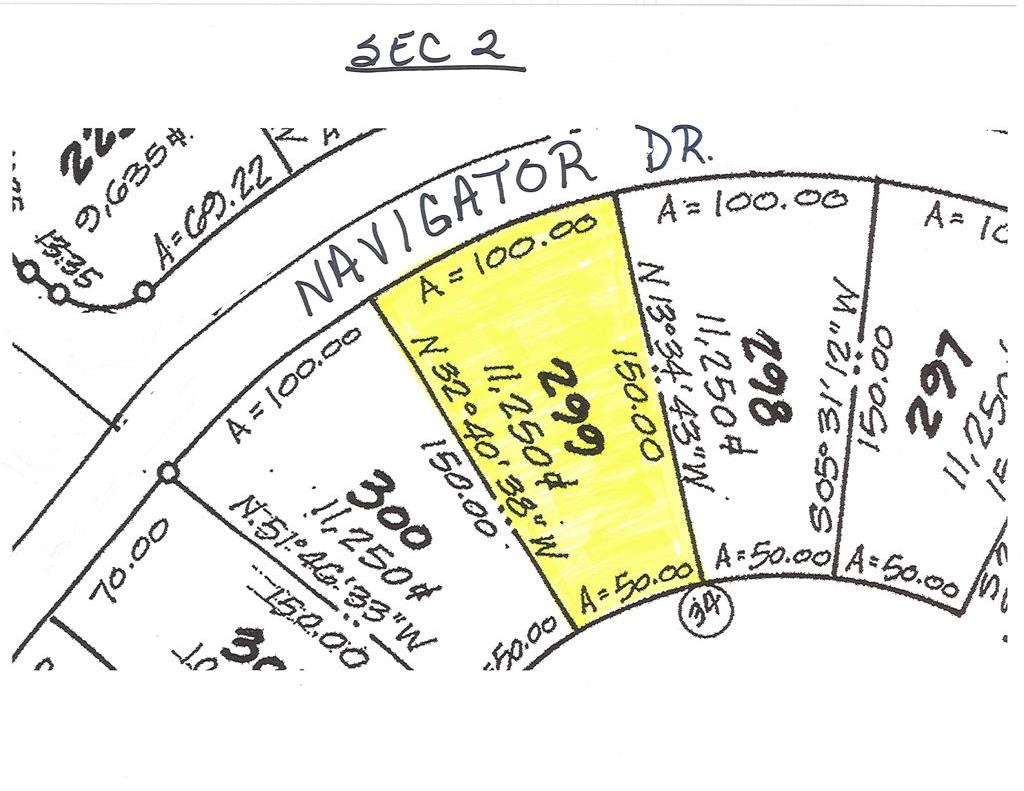 SEC 2
NAVIGATOR DR.
9,635
A=69.22
13.35
A=100.00
N 32°40'38" W
150.00
299
11,250
150.00
A=50.00
A=100.00
N 13°34'43" W
298
11,250
S 05°31'12" W
150.00
A=50.00
34
297
A=50.00
A=100.00
300
11,250
N 51°46'33" W
150.00
50.00
70.00